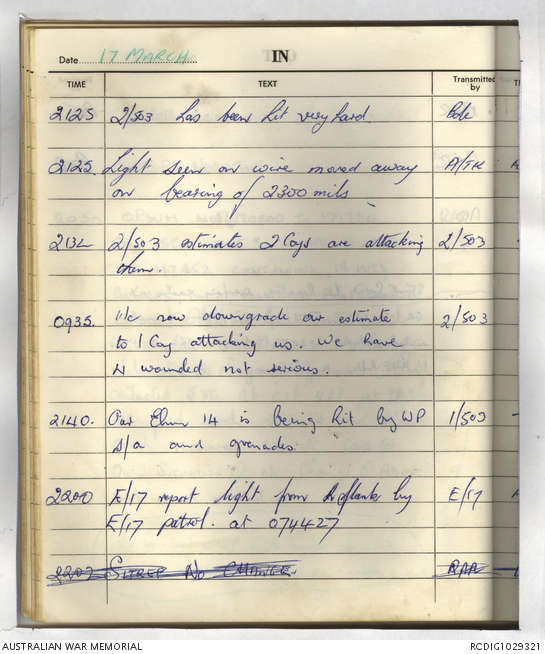 Date 17 MARCH IN
TIME TEXT Transmitted by
2125 2/503 has been hit very hard. Bde
2125 Light seen on wire moved away A/TK
on bearing of 2300 mils
2132 2/503 estimates 2 Coys are attacking 2/503
them
0935. We now downgrade our estimate 2/503
to 1 Coy attacking us. We have
4 wounded not serious.
2140. Our 14 is being hit by WP 1/503
s/a and grenades.
2200 E/17 report light from flank by E/17
E/17 patrol. at 074427
2202 SITREP NO CHANGE. RAR
AUSTRALIAN WAR MEMORIAL RCDIG1029321